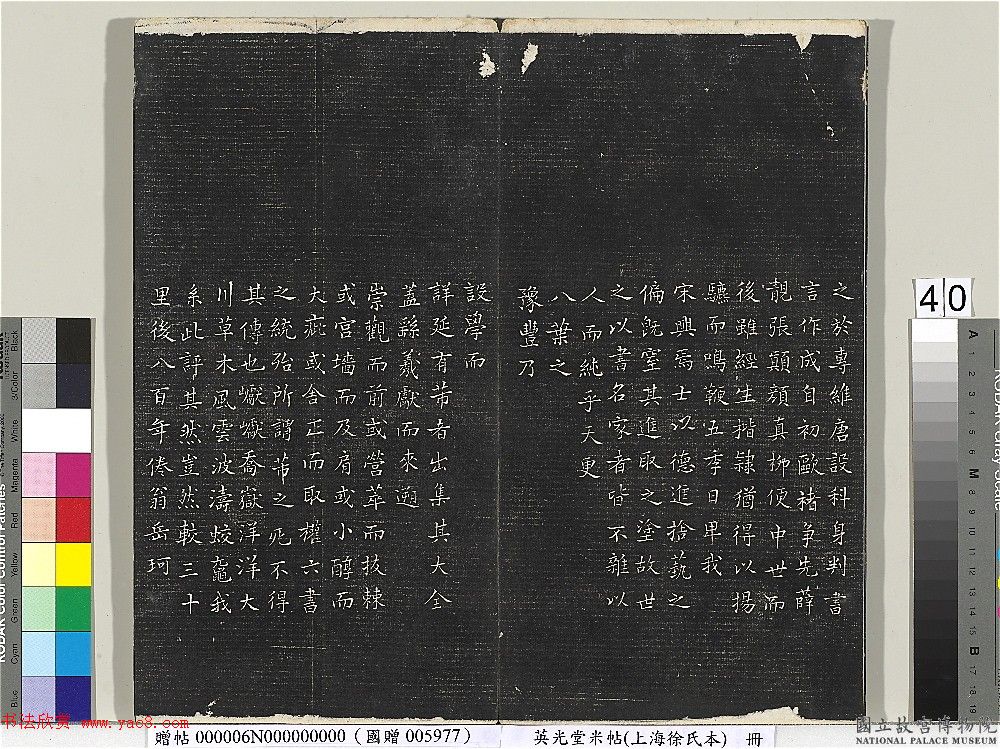 之於專維唐設科身判書
言作成自初歐褚爭先薛
靚張顛顏真柳便中世而
後雖經生揩隷猶得以揚
驤而鳴鞭五季日卑我
宋興焉士以德進捨藝之
偏旣窒其進取之塗故世
之以書名家者皆不雜以
人而純乎天更
八葉之
豫豐乃
設學而
詳延有芾者出集其大全
蓋繇羲獻而來遡
崇觀而前或營萃而抜棘
或宮墻而及肩或小醇而
大疵或舍正而取權六書
之統殆所謂芾之死不得
其傳也巘巘喬嶽洋洋大
川草木風雲波濤蛟鼉我
系此評其然豈然較三十
里後八百年倦翁岳珂
40
國立故宮博物院
NATIONAL PALACE MUSEUM
书法欣赏 www.yac8.com
贈帖 000006N000000000 (國贈 005977) 英光堂米帖(上海徐氏本) 冊
KODAK Color Control Patches
Blue Cyan Green Yellow Red Magenta White 3/Color Black
KODAK Gray Scale
A 1 2 3 4 5 6 M 8 9 10 11 12 13 14 15 B 17 18 19